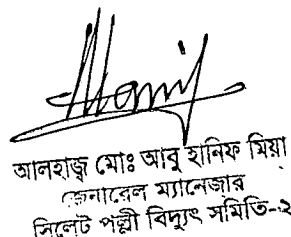 Hanif
আলহাজ্ব মোঃ আবু হানিফ মিয়া
জেনারেল ম্যানেজার
সিলেট পল্লী বিদ্যুৎ সমিতি-২